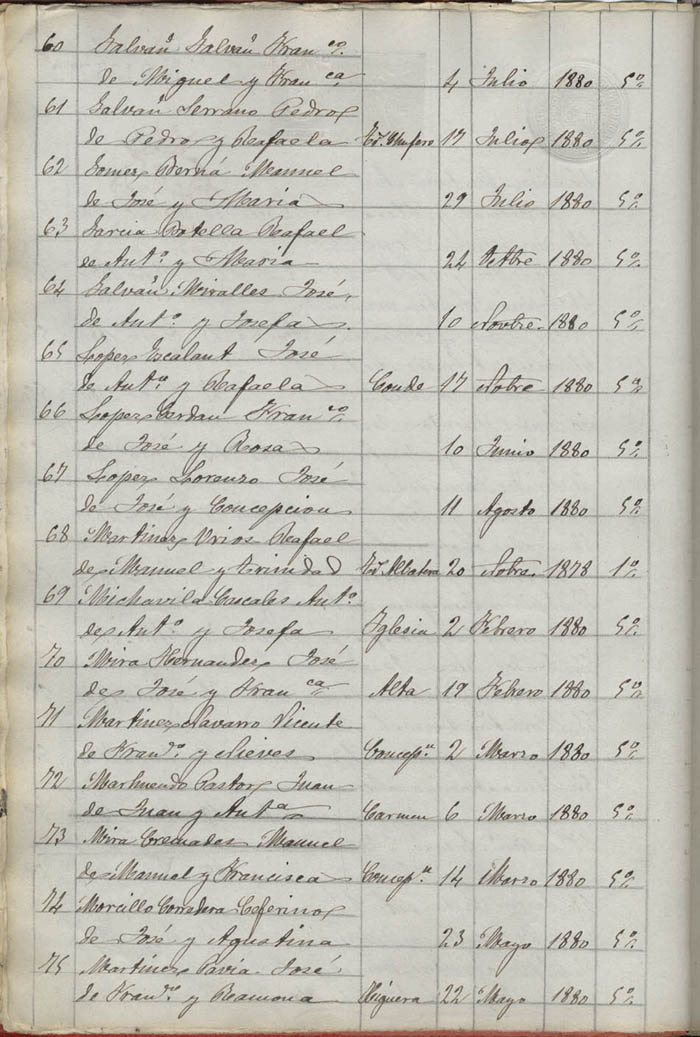 60 Galvañ Galvañ Fran.co
de Miguel y Fran.ca 4 Julio 1880 5º
61 Galvañ Serrano Pedro
de Pedro y Rafaela 17 Julio 1880 5º
62 Gomez Berná Manuel
de José y Maria 29 Julio 1880 5º
63 Garcia Botella Rafael
de Ant.º y Maria 24 1880 5º
64 Galvañ Miralles José
de Ant.º y Josefa 10 Novbre 1880 5º
65 Lopez Escalant José
de Ant.º y Rafaela Conde 17 1880 5º
66 Lopez Cerdan Fran.co
de José y Rosa 10 Junio 1880 5º
67 Lopez Lorenzo José
de José y Concepcion 11 Agosto 1880 5º
68 Martinez Urios Rafael
de Manuel y Trinidad Albatera 20 1878 1º
69 Michavila Cascales Ant.º
de Ant.º y Josefa Iglesia 2 Febrero 1880 5º
70 Mira Hernandez José
de José y Fran.ca Alta 19 Febrero 1880 5º
71 Martinez Navarro Vicente
de Fran.co y Nieves Concep.n 2 Marzo 1880 5º
72 Pastor Juan
de Juan y Ant.a Carmen 6 Marzo 1880 5º
73 Mira Cremades Manuel
de Manuel y Francisca Concep.n 14 Marzo 1880 5º
74 Morcillo Corredera Ceferino
de José y Agustina 23 Mayo 1880 5º
75 Martinez Pavia José
de Fran.co y Ramona Higuera 22 Mayo 1880 5º